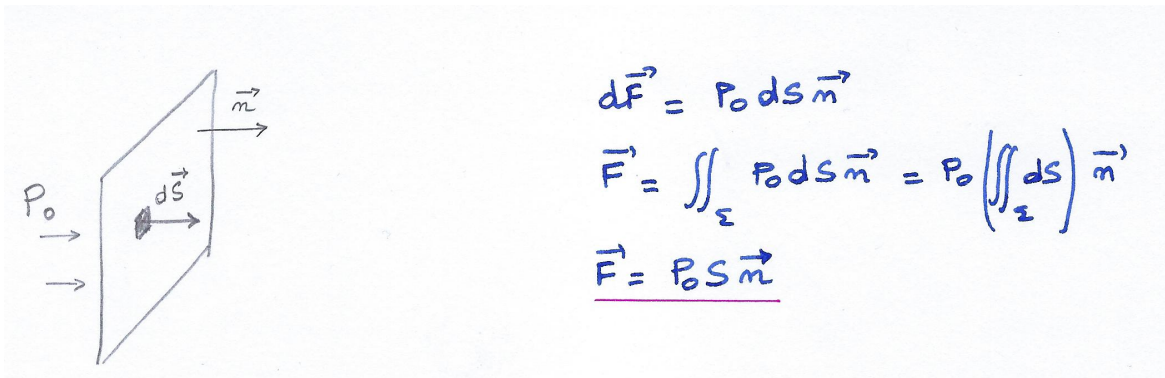 n⃗
dS⃗
P₀
dF⃗ = P₀ dS n⃗
F⃗ = ∬_Σ P₀ dS n⃗ = P₀ (∬_Σ dS) n⃗
F⃗ = P₀ S n⃗